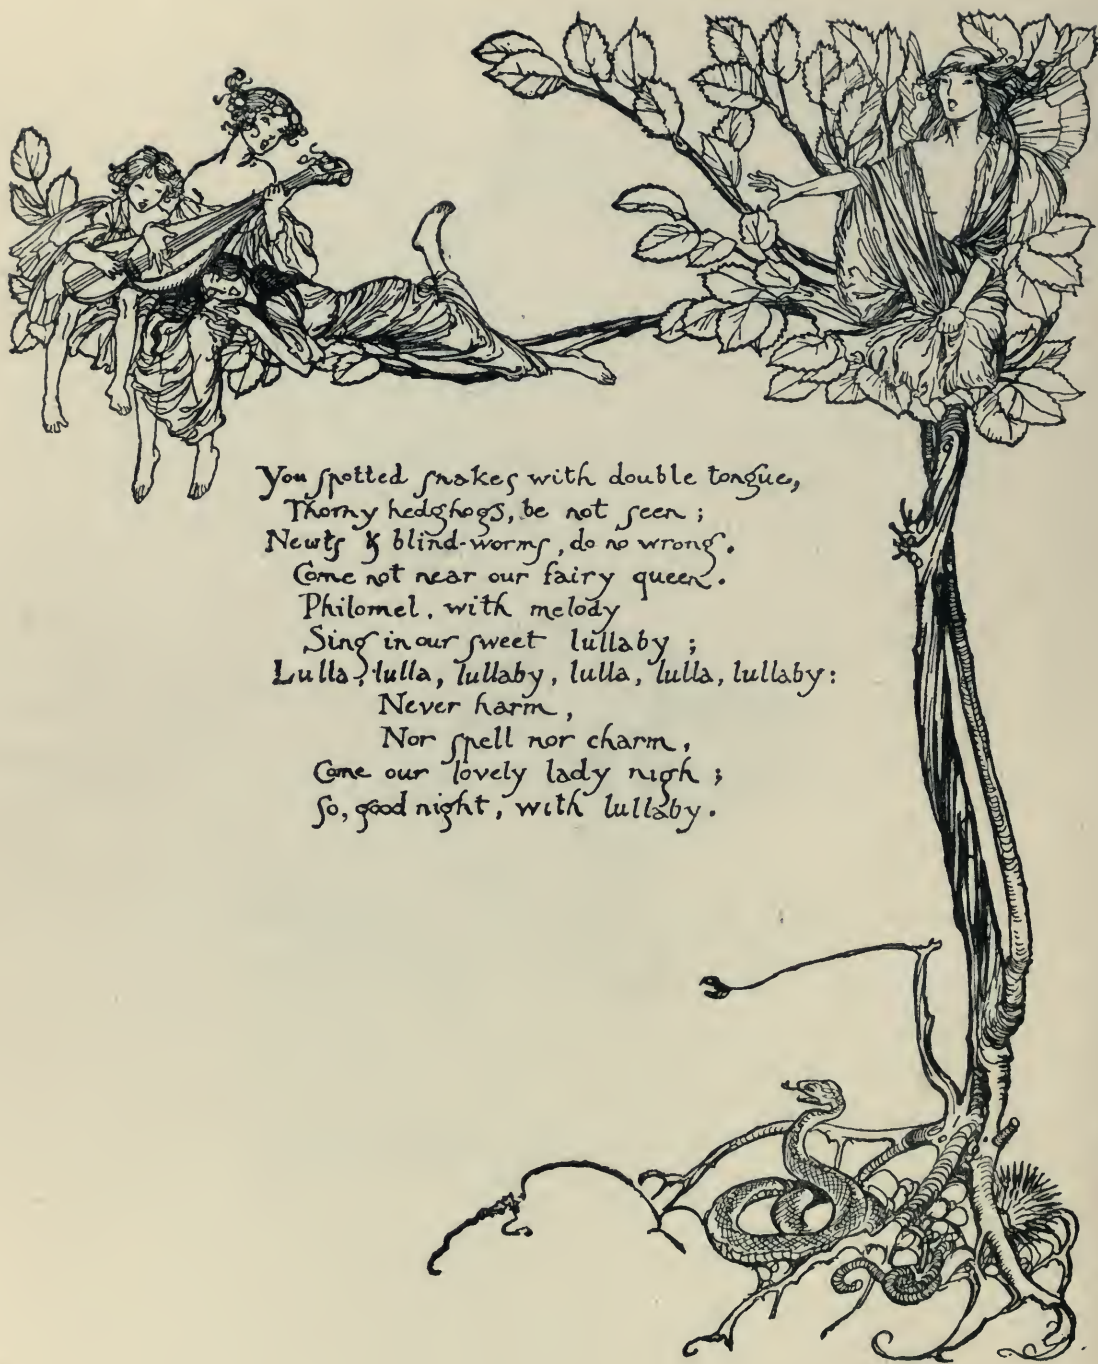 You spotted snakes with double tongue,
Thorny hedghogs, be not seen ;
Newts & blind-worms, do no wrong.
Come not near our fairy queen.
Philomel, with melody
Sing in our sweet lullaby ;
Lulla, lulla, lullaby, lulla, lulla, lullaby :
Never harm,
Nor spell nor charm,
Come our lovely lady nigh ;
So, good night, with lullaby.